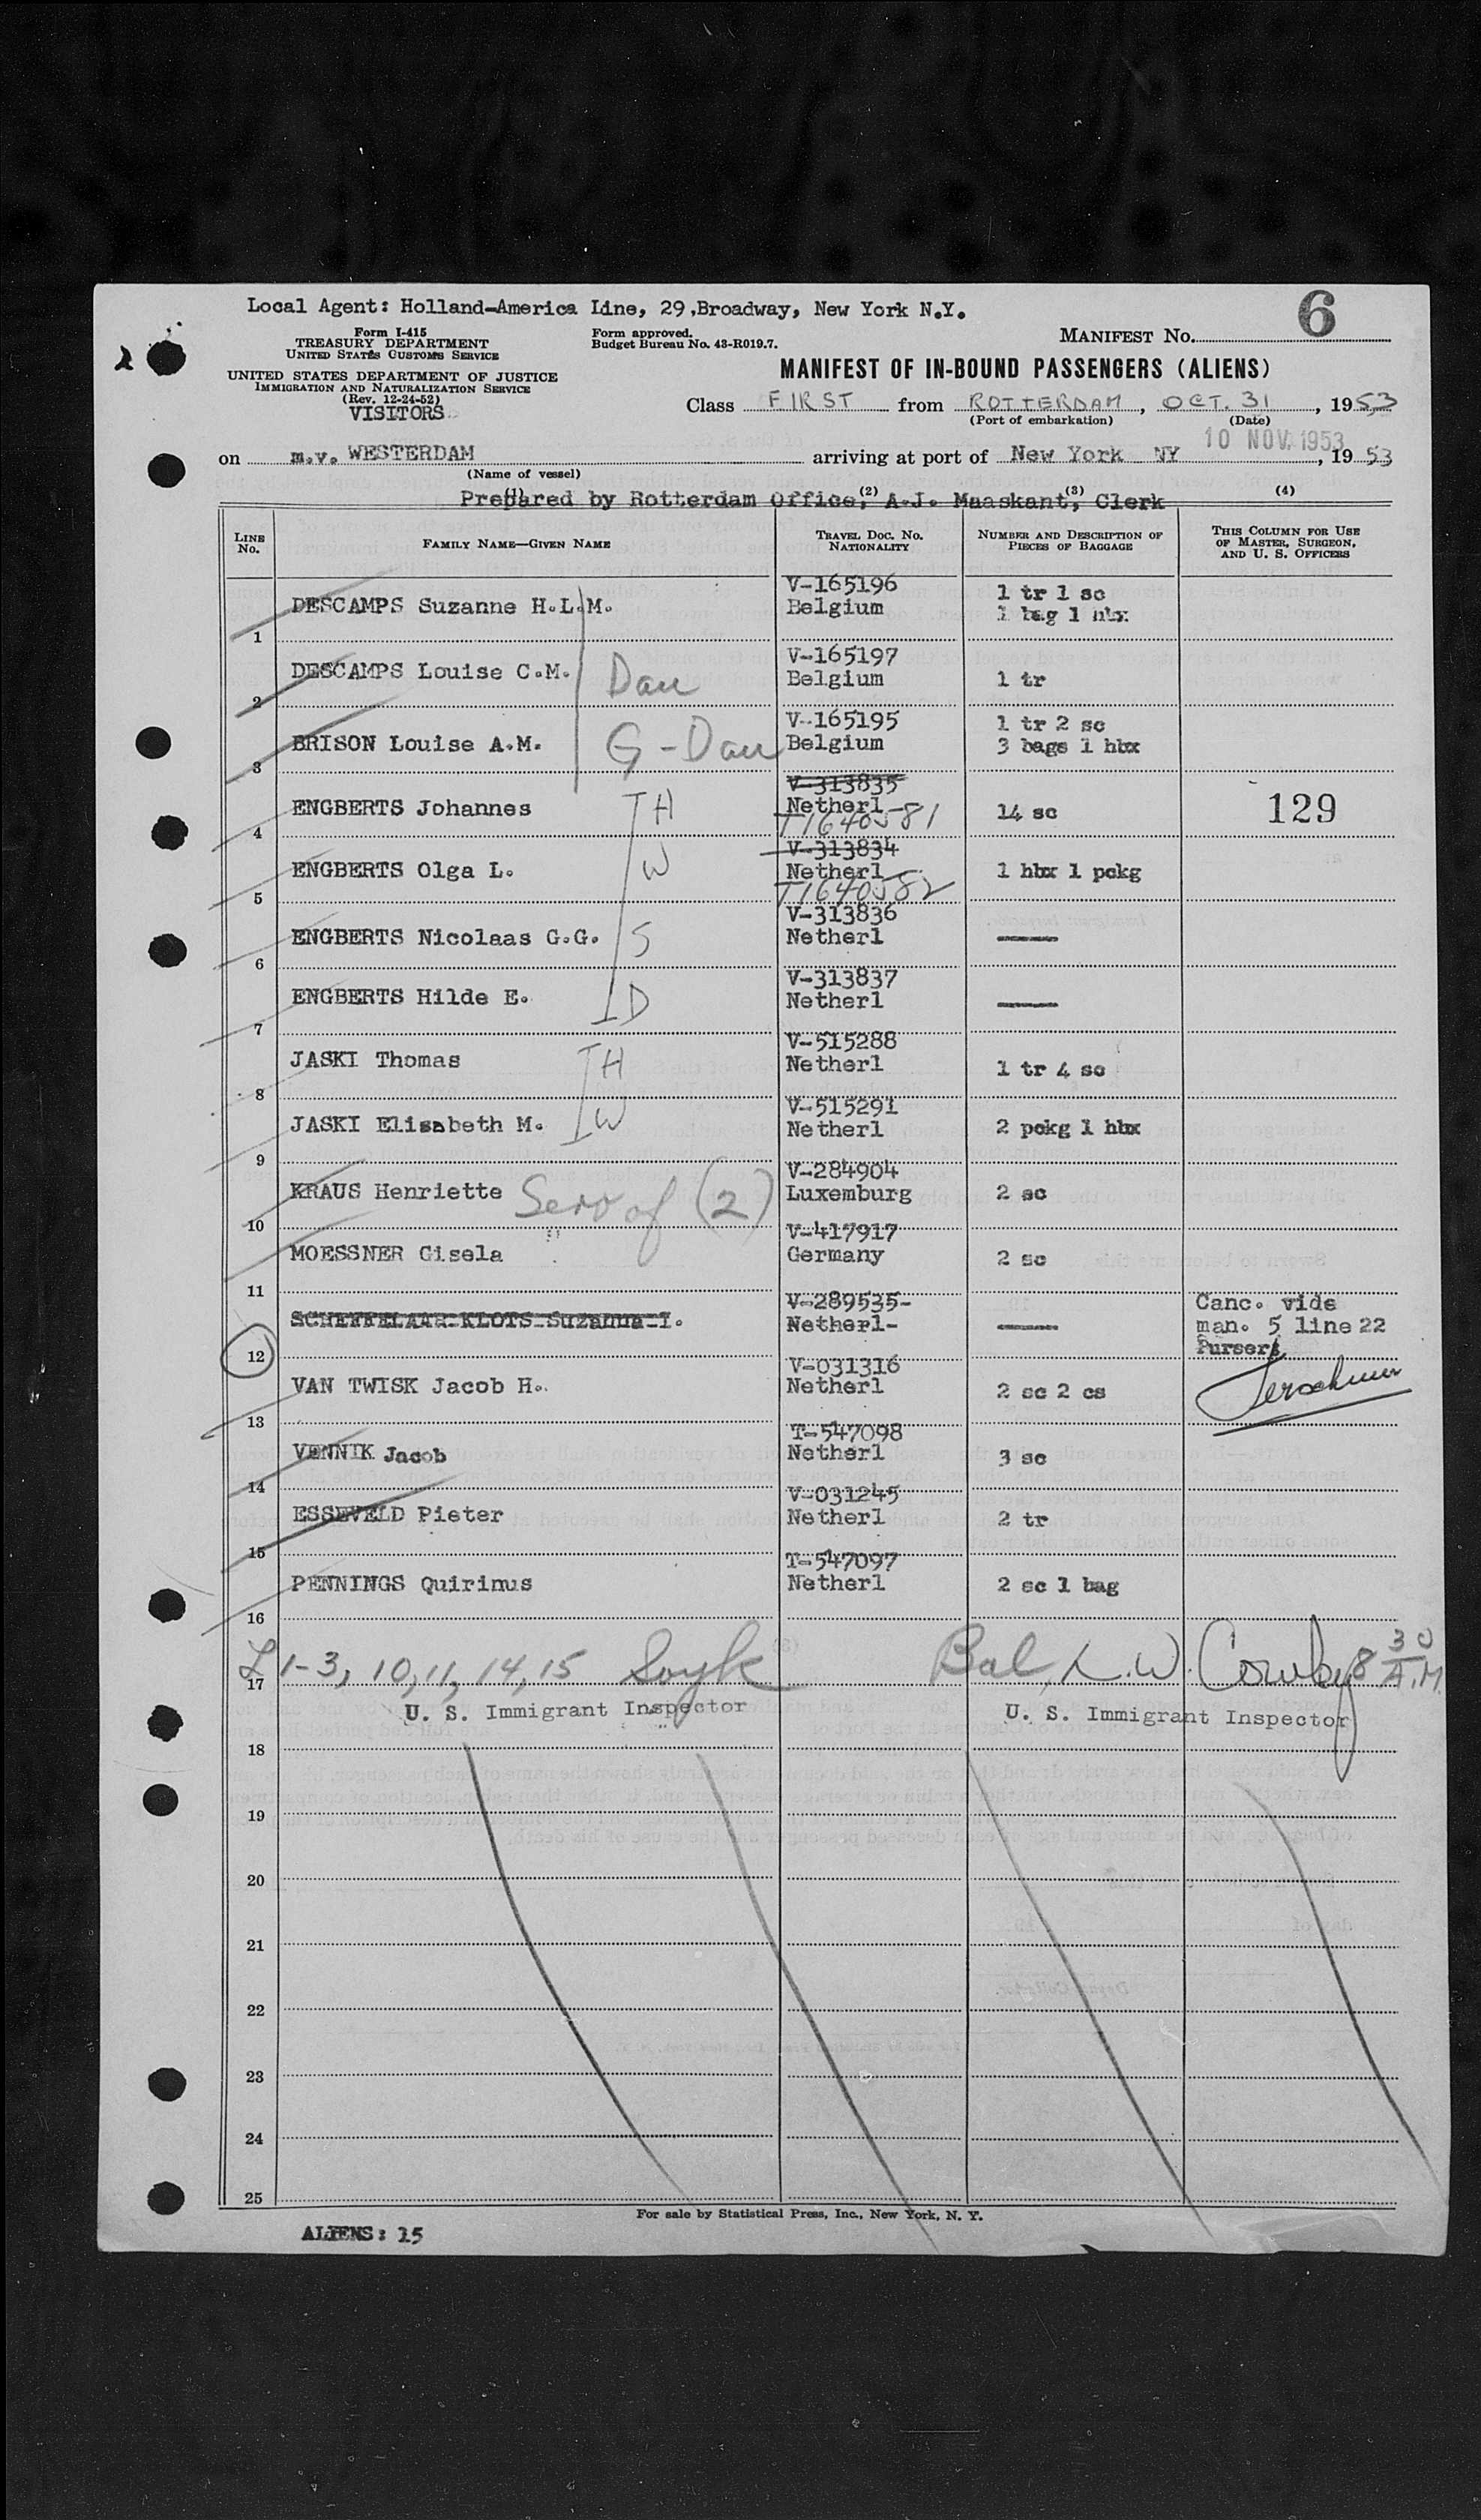 Local Agent: Holland-America Line, 29,Broadway, New York N.Y.
6
Form I-415
TREASURY DEPARTMENT
UNITED STATES CUSTOMS SERVICE
Form approved.
Budget Bureau No. 43-R019.7.
MANIFEST No.
UNITED STATES DEPARTMENT OF JUSTICE
IMMIGRATION AND NATURALIZATION SERVICE
(Rev. 12-24-52)
VISITORS
MANIFEST OF IN-BOUND PASSENGERS (ALIENS)
Class FIRST from ROTTERDAM, OCT. 31, 1953
(Port of embarkation) (Date)
10 NOV. 1953
on m.v. WESTERDAM arriving at port of New York NY, 1953
(Name of vessel)
Prepared by Rotterdam Office, A.J. Maaskant, Clerk
(1) (2) (3) (4)
LINE No. FAMILY NAME—GIVEN NAME TRAVEL DOC. NO. NATIONALITY NUMBER AND DESCRIPTION OF PIECES OF BAGGAGE THIS COLUMN FOR USE OF MASTER, SURGEON, AND U. S. OFFICERS
1 DESCAMPS Suzanne H.L.M. V-165196 Belgium 1 tr 1 sc 1 bag 1 hbx
2 DESCAMPS Louise C.M. Dau V-165197 Belgium 1 tr
3 BRISON Louise A.M. G-Dau V-165195 Belgium 1 tr 2 sc 3 bags 1 hbx
4 ENGBERTS Johannes H V-313835 Netherl T1640581 14 sc 129
5 ENGBERTS Olga L. W V-313834 Netherl T1640582 1 hbx 1 pckg
6 ENGBERTS Nicolaas G.G. S V-313836 Netherl ——
7 ENGBERTS Hilde E. D V-313837 Netherl ——
8 JASKI Thomas H V-515288 Netherl 1 tr 4 sc
9 JASKI Elisabeth M. W V-515291 Netherl 2 pckg 1 hbx
10 KRAUS Henriette Serv of (2) V-284904 Luxemburg 2 sc
11 MOESSNER Gisela V-417917 Germany 2 sc
12 SCHEFFELAAR KLOTS Suzanna I. V-289535- Netherl- —— Canc. vide man. 5 line 22 Purser
13 VAN TWISK Jacob H. V-031316 Netherl 2 sc 2 cs
14 VENNIK Jacob T-547098 Netherl 3 sc
15 ESSEVELD Pieter V-031245 Netherl 2 tr
16 PENNINGS Quirinus T-547097 Netherl 2 sc 1 bag
17 1-3, 10, 11, 14, 15 Bal, L.W. 8 30 A.M.
U. S. Immigrant Inspector U. S. Immigrant Inspector
18
19
20
21
22
23
24
25
For sale by Statistical Press, Inc., New York, N. Y.
ALIENS: 15